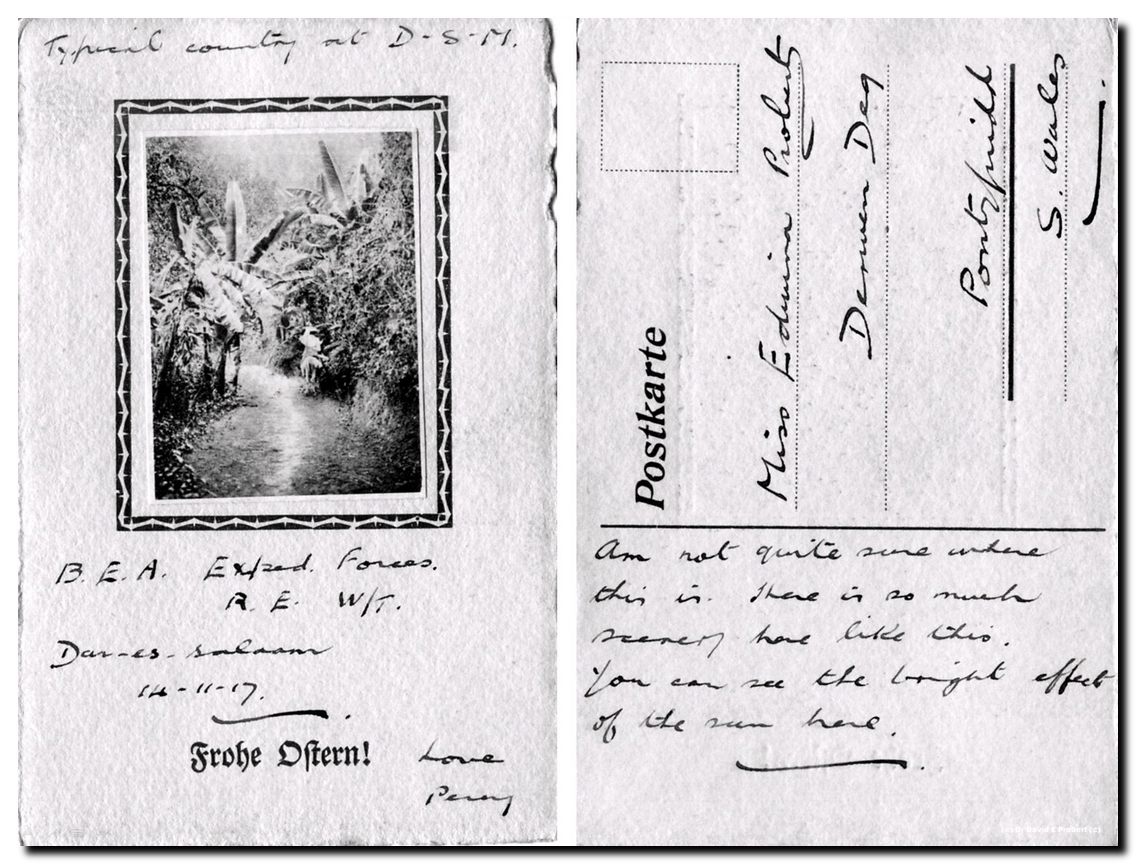 Typical country at D-S-M.
B. E. A. Exped. Forces.
R. E. W/T.
Dar-es-salaam
14-11-17.
Frohe Ostern!
Love
Percy
Postkarte
Miss Edwina Probert
Derwen Deg
Pontypridd
S. Wales.
Am not quite sure where
this is. There is so much
scenery here like this.
You can see the bright effect
of the sun here.